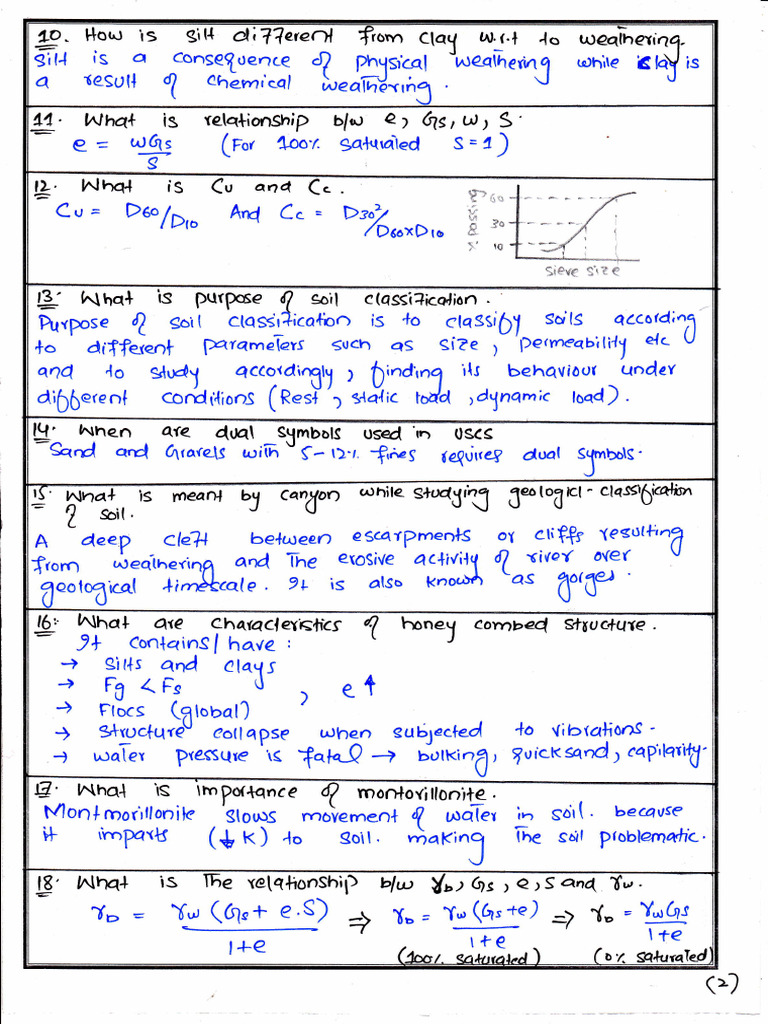 10. How is silt different from clay w.r.t to weathering.
Silt is a consequence of physical weathering while clay is
a result of chemical weathering.
11. What is relationship b/w e, Gs, w, S.
e = wGs/S (For 100% saturated S=1)
12. What is Cu and Cc.
Cu = D60/D10 And Cc = D30²/D60xD10
% Passing
60
30
10
sieve size
13. What is purpose of soil classification.
Purpose of soil classification is to classify soils according
to different parameters such as size, permeability etc
and to study accordingly, finding its behaviour under
different conditions (Rest, static load, dynamic load).
14. When are dual symbols used in USCS
Sand and Gravels with 5-12% fines requires dual symbols.
15. What is meant by canyon while studying geologicl-classification
of soil.
A deep cleft between escarpments or cliffs resulting
from weathering and the erosive activity of river over
geological timescale. It is also known as gorges.
16. What are characteristics of honey combed structure.
It contains/have:
→ Silts and clays
→ Fg < Fs , e ↑
→ Flocs (global)
→ structure collapse when subjected to vibrations.
→ water pressure is fatal → bulking, quicksand, capilarity.
17. What is importance of montorillonite.
Montmorillonite slows movement of water in soil. because
it imparts (↓ K) to soil. making the soil problematic.
18. What is the relationship b/w γb, Gs, e, S and γw.
γb = γw (Gs + e.S)/1+e ⇒ γb = γw (Gs+e)/1+e ⇒ γb = γwGs/1+e
(100% saturated) (0% saturated)
(2)